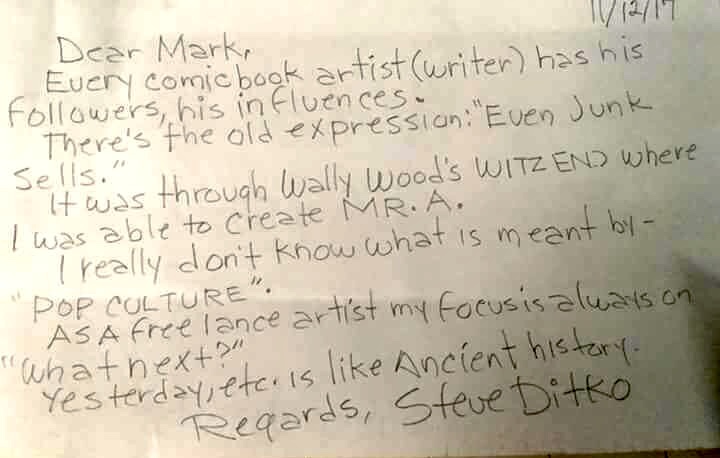 11/12/17
Dear Mark,
Every comic book artist (writer) has his
followers, his influences.
There's the old expression: "Even Junk
Sells."
It was through Wally Wood's WITZEND where
I was able to create MR. A.
I really don't know what is meant by -
"POP CULTURE".
AS A free lance artist my focus is always on
"What next?"
Yesterday, etc. is like Ancient history.
Regards, Steve Ditko